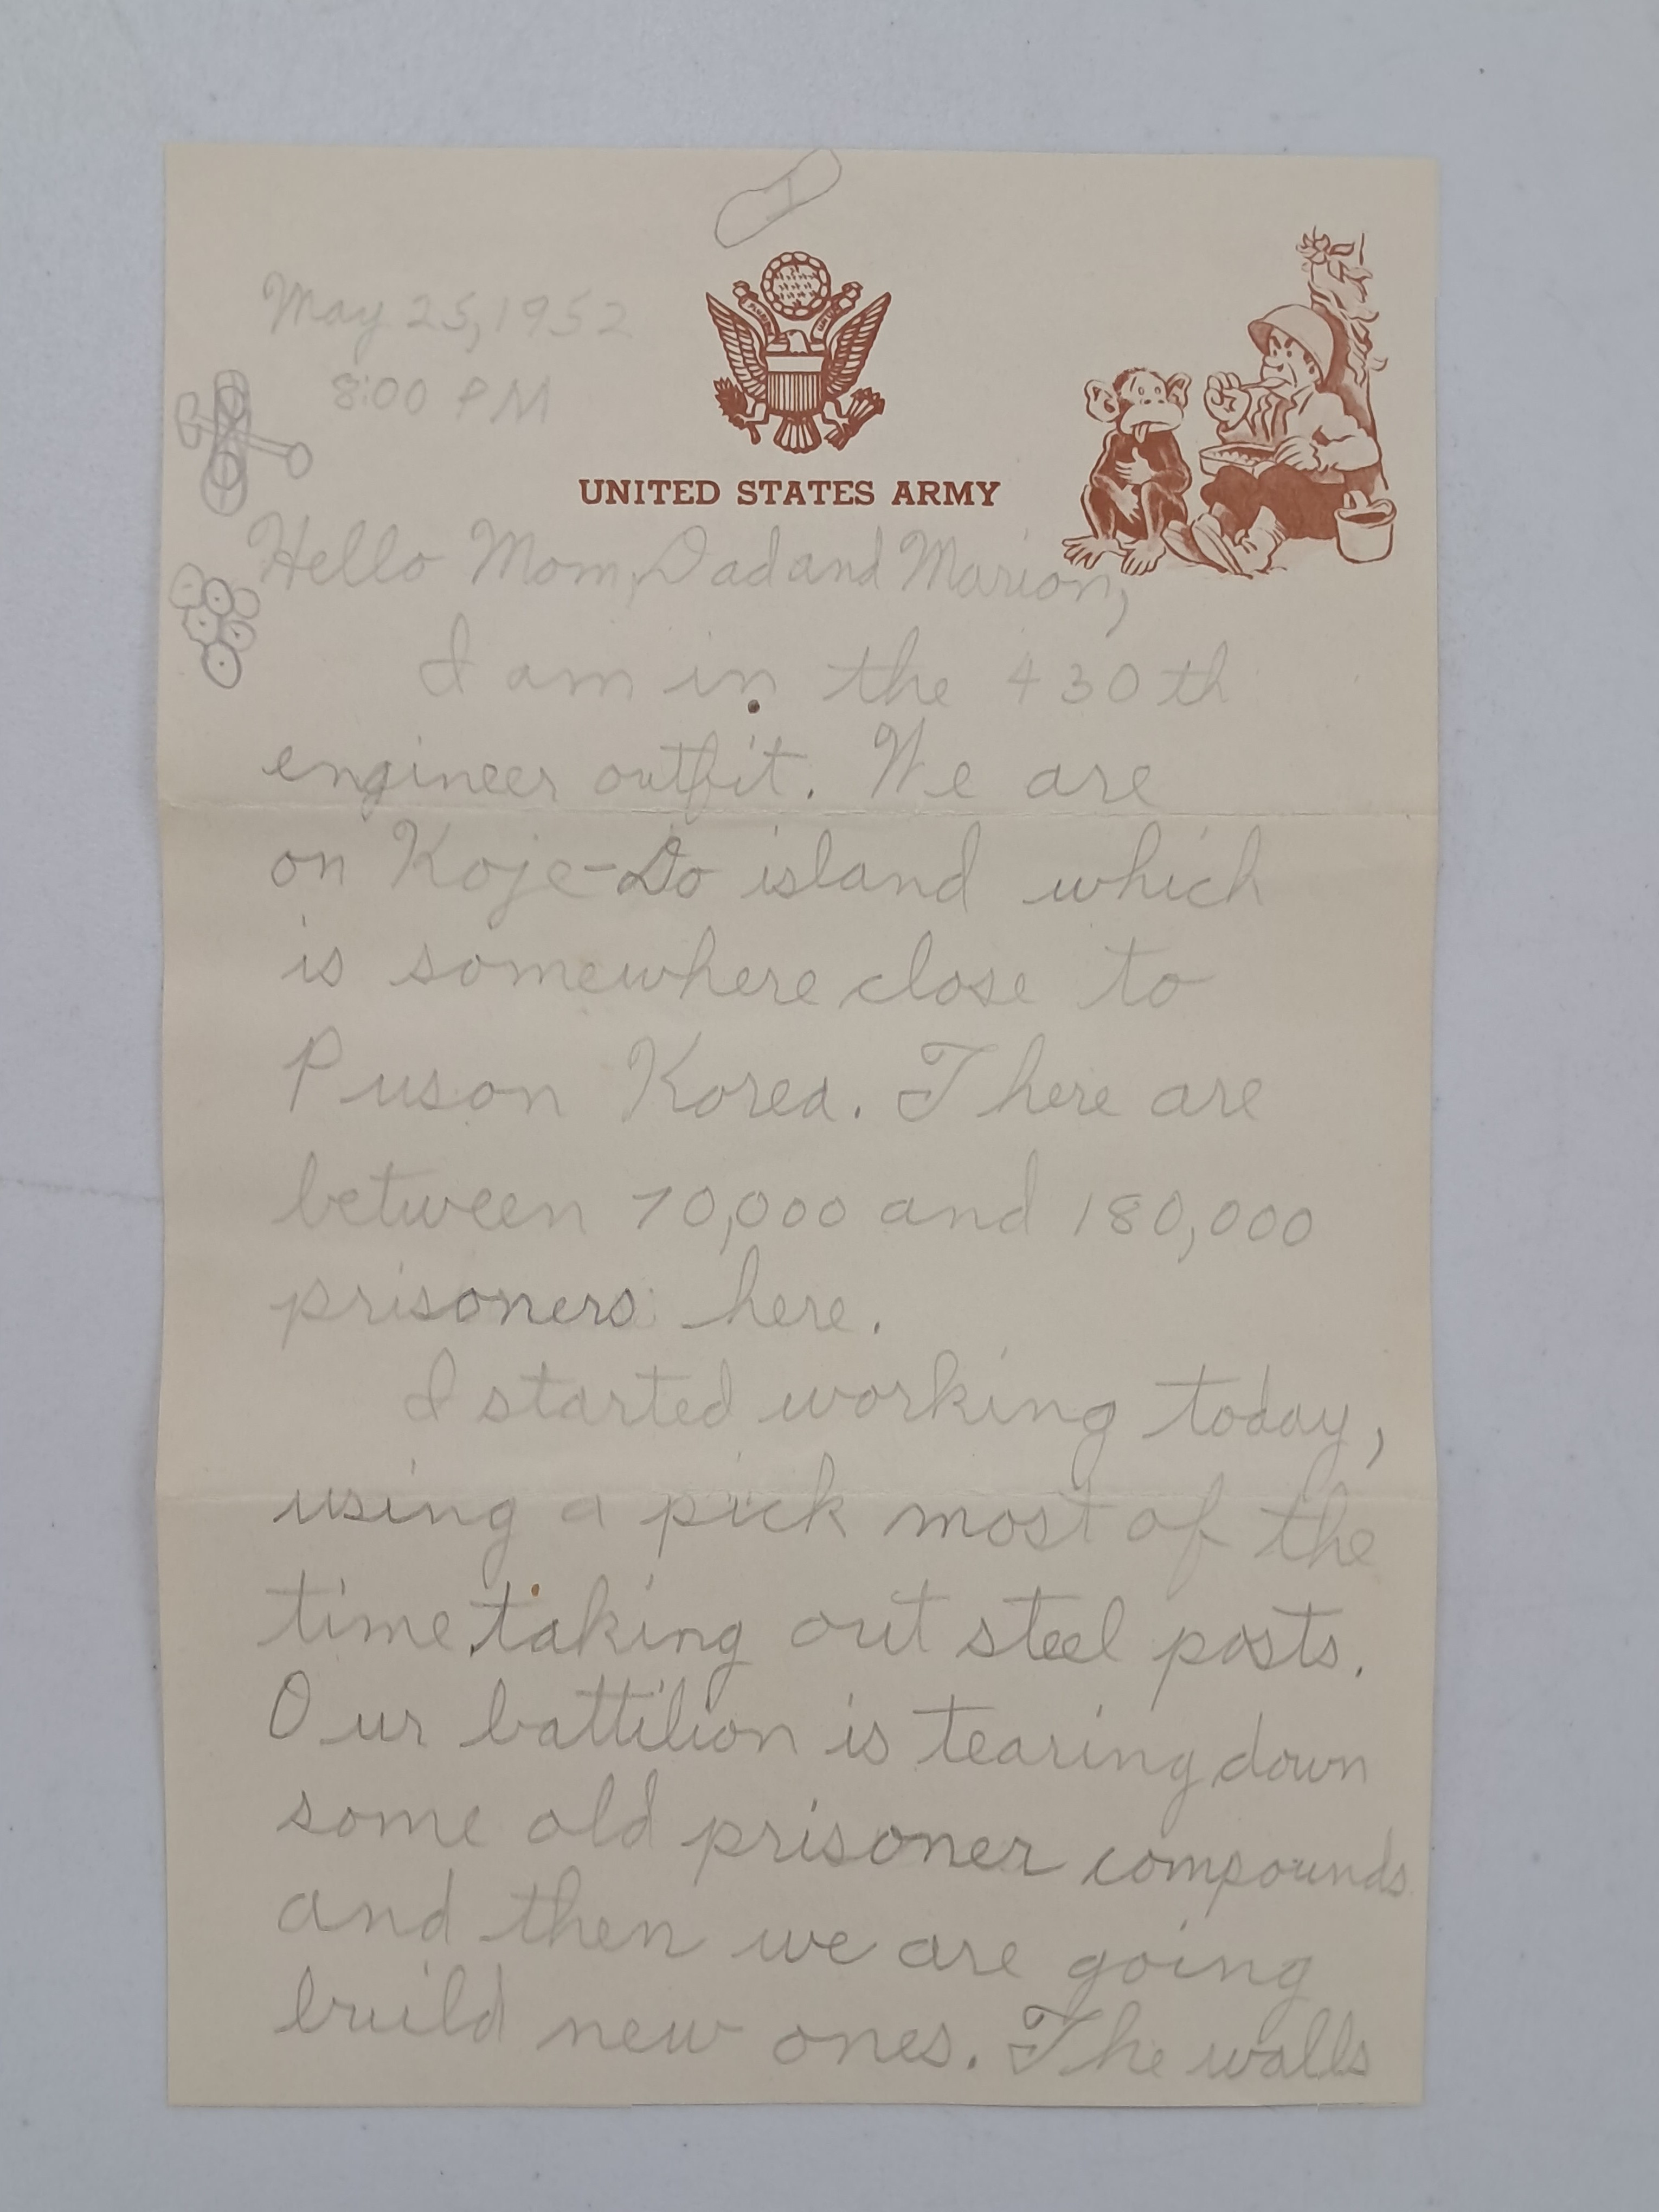 I
May 25, 1952
8:00 PM
UNITED STATES ARMY
Hello Mom, Dad and Marion,
I am in the 430th
engineer outfit. We are
on Koje-Do island which
is somewhere close to
Puson Korea. There are
between 70,000 and 180,000
prisoners here.
I started working today,
using a pick most of the
time taking out steel posts.
Our battilion is tearing down
some old prisoner compounds
and then we are going
build new ones. The walls